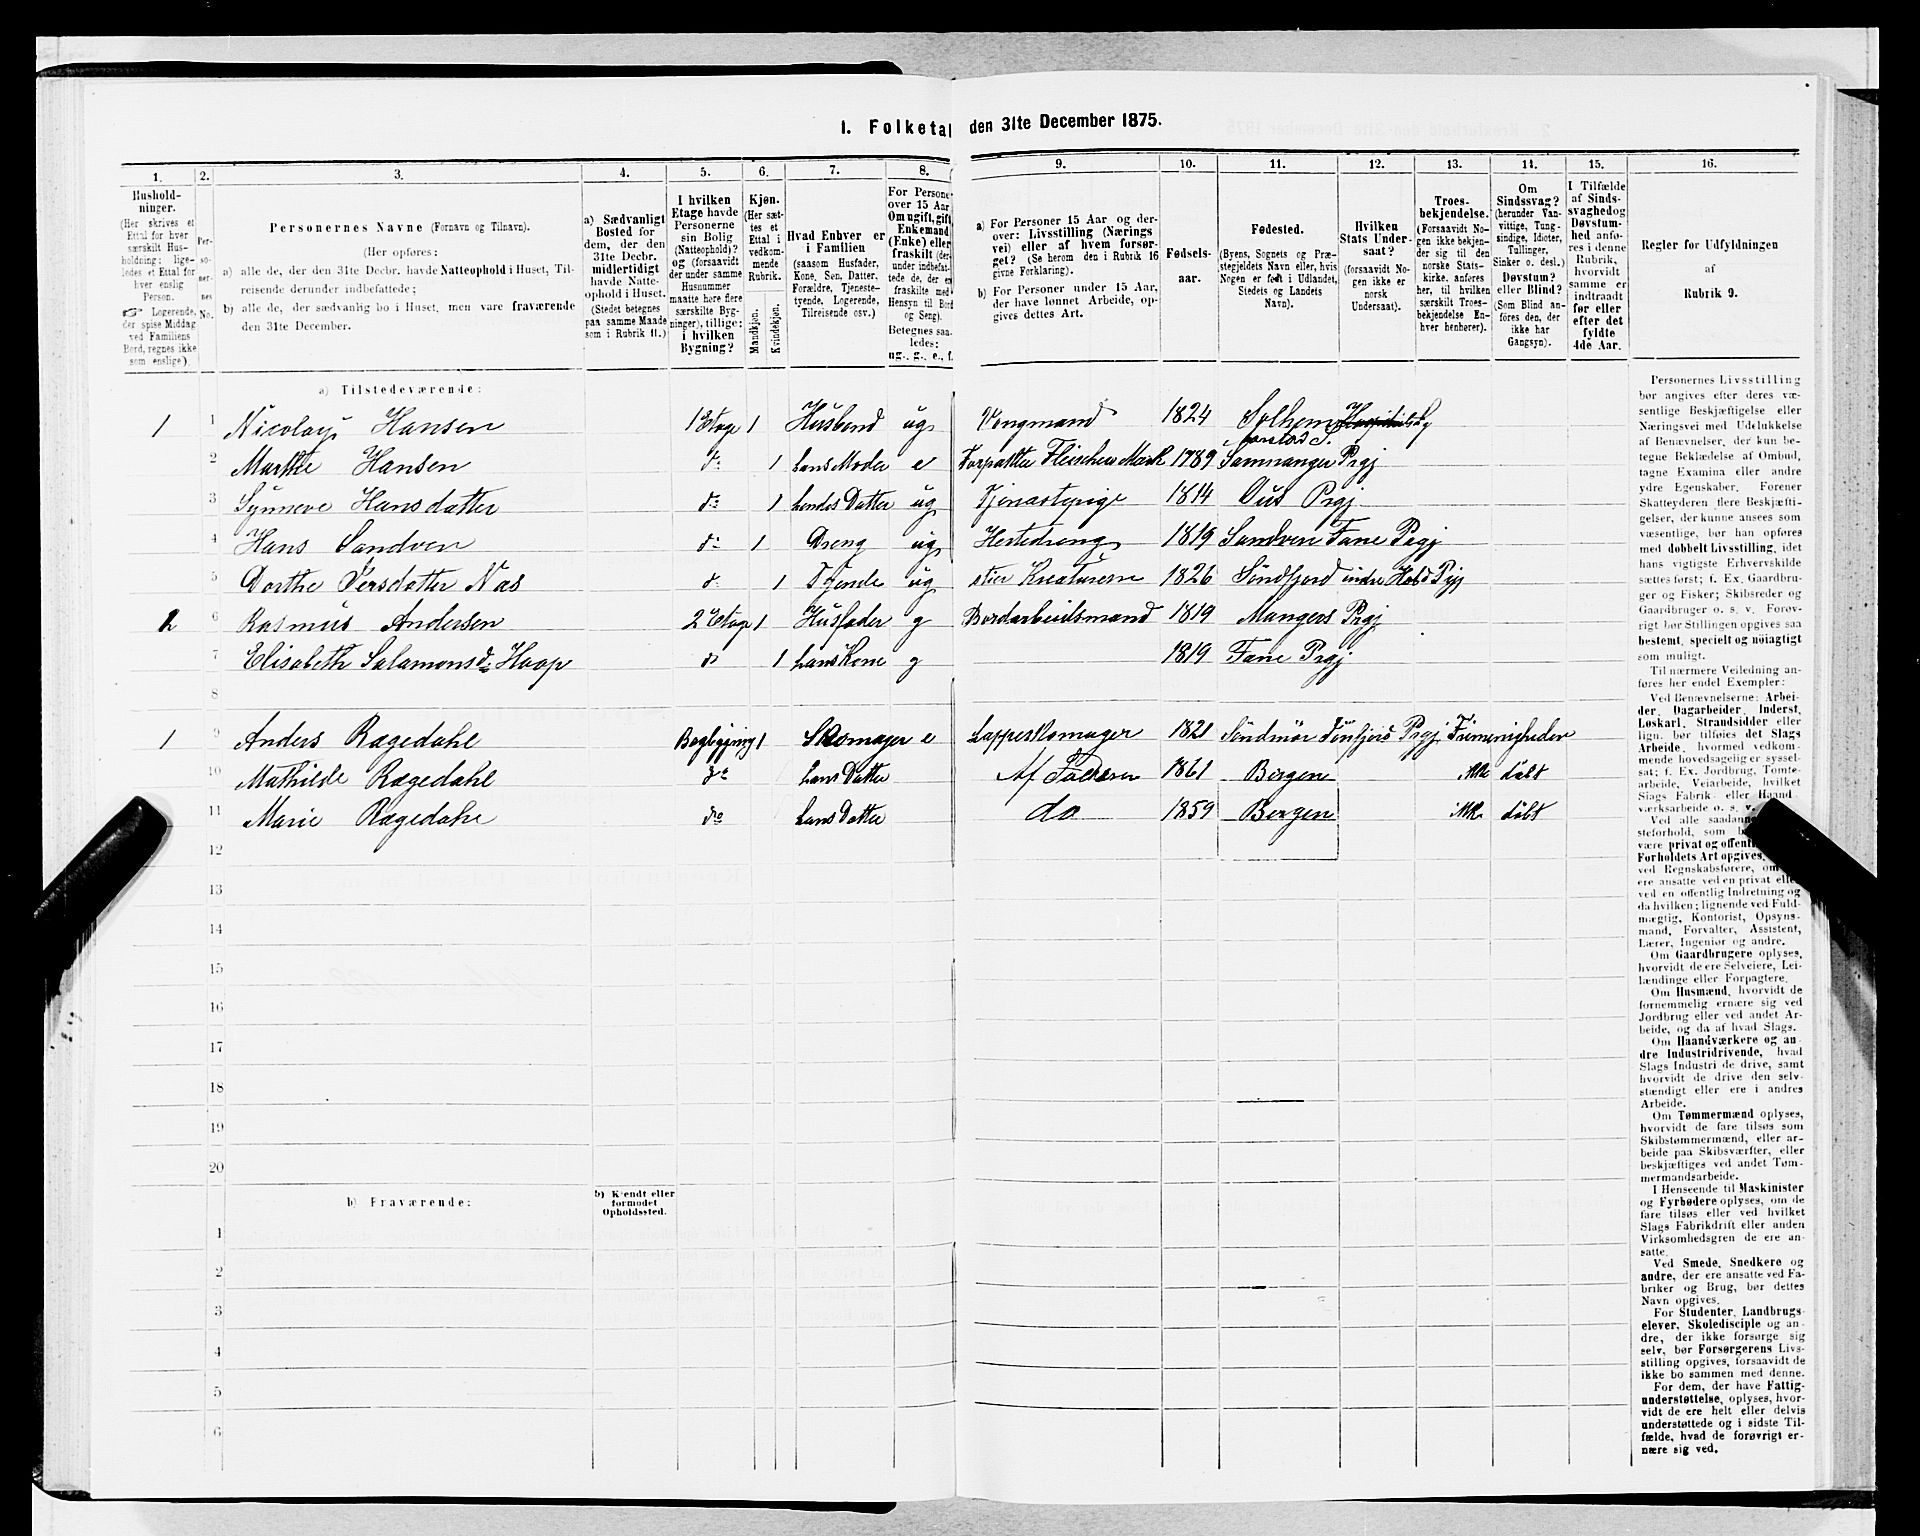 1. Folketal den 31te December 1875.
1. 2. 3. 4. 5. 6. 7. 8. 9. 10. 11. 12. 13. 14. 15. 16.
Hushold-
ninger.
(Her skrives et
Ettal for hver
særskilt Hus-
holdning; lige-
ledes et Ettal for
hver enslig
Person.
☞ Logerende,
der spise Middag
ved Familiens
Bord, regnes ikke
som enslige).
Per-
so-
ner-
nes
No.
Personernes Navne (Fornavn og Tilnavn).
(Her opføres:
a) alle de, der den 31te Decbr. havde Natteophold i Huset, Til-
reisende derunder indbefattede;
b) alle de, der sædvanlig bo i Huset, men vare fraværende
den 31te December.
a) Sædvanligt
Bosted for
dem, der den
31te Decbr.
midlertidigt
havde Natte-
ophold i Huset.
(Stedet betegnes
paa samme Maade
som i Rubrik 11.)
I hvilken
Etage havde
Personerne
sin Bolig
(Natteophold)?
og (forsaavidt
der under samme
Husnummer
maatte høre flere
særskilte Byg-
ninger), tillige:
i hvilken
Bygning?
Kjøn.
(Her sæt-
tes et
Ettal i
vedkom-
mende
Rubrik.
Mandkjøn.
Kvindekjøn.
Hvad Enhver er
i Familien
(saasom Husfader,
Kone, Søn, Datter,
Forældre, Tjeneste-
tyende, Logerende,
Tilreisende osv.)
For Persone
over 15 Aar
Om ugift, gift
Enkemand
(Enke) eller
fraskilt (der-
under indbefat-
tede de, der e
fraskilte med
Hensyn til Bord
og Seng).
Betegnes saa-
ledes:
ug., g., e., f.
a) For Personer 15 Aar og der-
over: Livsstilling (Nærings
vei) eller af hvem forsør-
get? (Se herom den i Rubrik 16
givne Forklaring).
b) For Personer under 15 Aar,
der have lønnet Arbeide, op-
gives dettes Art.
Fødsels-
aar.
Fødested.
(Byens, Sognets og Præ-
stegjeldets Navn eller, hvis
Nogen er født i Udlandet,
Stedets og Landets
Navn).
Hvilken
Stats Under-
saat?
(forsaavidt No-
gen ikke er
norsk
Undersaat).
Troes-
bekjendelse.
(Forsaavidt No-
gen ikke bekjen-
der sig til den
norske Stats-
kirke, anføres
her, til hvilken
særskilt Troes-
bekjendelse En-
hver henhører).
Om
Sindssvag?
(herunder Van-
vittige, Tung-
sindige, Idioter,
Tullinger,
Sinker o. desl.)
Døvstum?
eller Blind?
(Som Blind an-
føres den, der
ikke har
Gangsyn).
I Tilfælde
af Sinds-
svaghed og
Døvstum-
hed anfø-
res i denne
Rubrik,
hvorvidt
samme er
indtraadt
før eller
efter det
fyldte
4de Aar.
Regler for Udfyldningen
af
Rubrik 9.
a) Tilstedeværende:
1 1 Nicolay Hansen 1 Etage 1 Husbond ug 1824 Solhem
2 Marthe Hansen do 1 hans Moder e 1789 Samnanger Prgj
3 Synneve Hansdatter do 1 Datter ug Tjenestepige 1814 Ous Prgj
4 Hans Sandven do 1 Dreng ug Hestedreng 1819 Sandven Fane Prgj
5 Dorthe Iversdatter Næs do 1 Tjende ug Kreaturene 1826 Søndfjord indre Prgj
2 6 Rasmus Andersen 2 Etage 1 Husfader g Bordarbeidsmand 1819 Mangers Prgj
7 Elisabeth Salamonsd. Haop do 1 hans Kone g 1819 Fane Prgj
8
1 9 Anders Rægedahl Bagbygning 1 Skomager e Lappeskomager 1821 Søndmør Prgj
10 Mathilde Rægedahl do hans Datter Af Faderen 1861 Bergen ikke døbt
11 Marie Rægedahl do hans Datter do 1859 Bergen ikke døbt
12
13
14
15
16
17
18
19
20
b) Fraværende:
b) Kjendt eller
formodet
Opholdssted.
1
2
3
4
5
6
Personernes Livsstilling
bør angives efter deres væ-
sentlige Beskjæftigelse eller
Næringsvei med Udelukkelse
af Benævnelser, der kun be-
tegne Beklædelse af Ombud,
tagne Examina eller andre
ydre Egenskaber. Forener
Skatteyderen flere Beskjæfti-
gelser, der kunne ansees som
væsentlige, bør han opføres
med dobbelt Livsstilling, idet
hans vigtigste Erhvervskilde
sættes først; f. Ex. Gaardbru-
ger og Fisker; Skibsreder og
Gaardbruger o. s. v. Forøv-
rigt bør Stillingen opgives saa
bestemt, specielt og nöiagtigt
som muligt.
Til nærmere Veiledning an-
føres her endel Exempler:
Ved Benævnelserne: Arbei-
der, Dagarbeider, Inderst,
Løskarl, Strandsidder eller
lign. bør tilføies det Slags
Arbeide, hvormed vedkom-
mende hovedsagelig er syssel-
sat; f. Ex. Jordbrug, Tomte-
arbeide, Veiarbeide, hvilket
Slags Fabrik- eller Haand-
værksarbeide o. s. v.
Ved alle saadan
steforhold, som
være privat og offent
Forholdets Art opgives,
ved Regnskabsførere, om
ere ansatte ved en privat elle
ved en offentlig Indretning og
da hvilken; lignende ved Fuld-
mægtig, Kontorist, Opsyns-
mand, Forvalter, Assistent,
Lærer, Ingeniør og andre.
Om Gaardbrugere oplyses,
hvorvidt de ere Selveiere, Lei-
lændinge eller Forpagtere.
Om Husmænd, hvorvidt de
fornemmelig ernære sig ved
Jordbrug eller ved andet Ar-
beide, og da af hvad Slags.
Om Haandværkere og an-
dre Industridrivende, hvad
Slags Industri de drive, samt
hvorvidt de drive den selv-
stændigt eller ere i andres
Arbeide.
Om Tømmermænd oplyses,
hvorvidt de fare tilsøs som
Skibstømmermænd, eller ar-
beide paa Skibsværfter, eller
beskjæftiges ved andet Tøm-
mermandsarbeide.
I Henseende til Maskinister
og Fyrbødere oplyses, om de
fare tilsøs eller ved hvilket
Slags Fabrikdrift eller anden
Virksomhedsgren de ere an-
satte.
Ved Smede, Snedkere og
andre, der ere ansatte ved Fa-
briker og Brug, bør dettes
Navn opgives.
For Studenter, Landbrugs-
elever, Skoledisciple og an-
dre, der ikke forsørge sig
selv, bør Forsørgerens Livs-
stilling opgives, forsaavidt de
ikke bo sammen med denne.
For dem, der have Fattig-
understøttelse, oplyses, hvor-
vidt de ere helt eller delvis
understøttede og i sidste Til-
fælde, hvad de forøvrigt er-
nære sig ved.